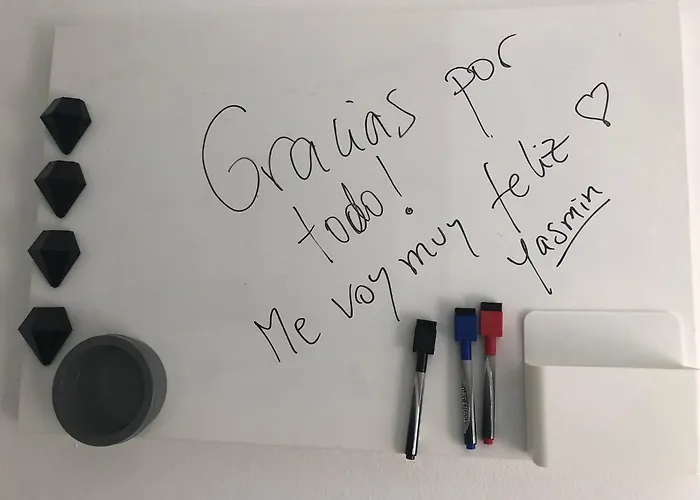 Gracias por
todo!
Me voy muy feliz ♡
Yasmin